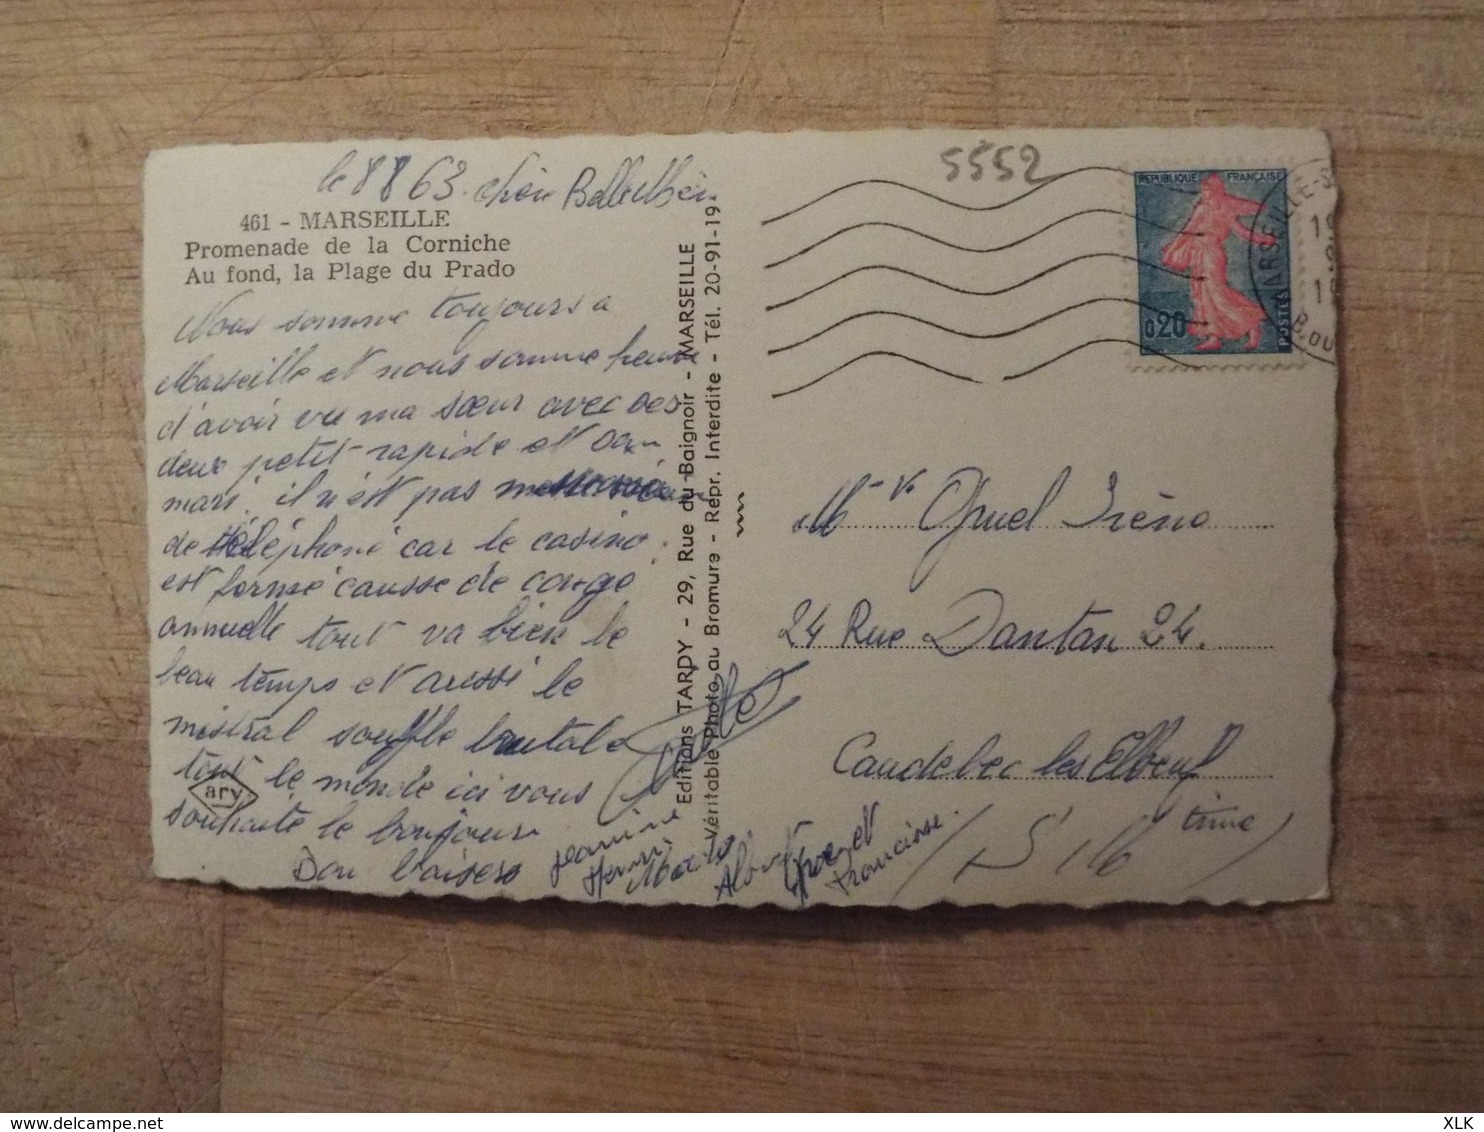 le 8 8 63. chère Belle Mère
461 - MARSEILLE
Promenade de la Corniche
Au fond, la Plage du Prado
Nous somme toujours a
Marseille et nous somme
d'avoir vu ma sœur avec ses
deux petit rapide et son
mari. il n'est pas
de téléphone car le casino
est fermé causse de conge
annuelle tout va bien le
beau temps et aussi le
mistral souffle brutale
tout le monde ici vous
souhaite le bonjours
Bon baisers
Jeanine
Henri
Albert
et
Francisse.
ary
Editions TARDY - 29, Rue du Baignoir - MARSEILLE
Véritable Photo au Bromure - Repr. Interdite - Tél. 20-91-19
5552
REPUBLIQUE FRANÇAISE
0,20
POSTES
MARSEILLE-S
B. DU
M-ve Opuel Irène
24 Rue Dantan 24.
Caudebec les Elbeuf
/ S' Mtime /
delcampe.net
XLK